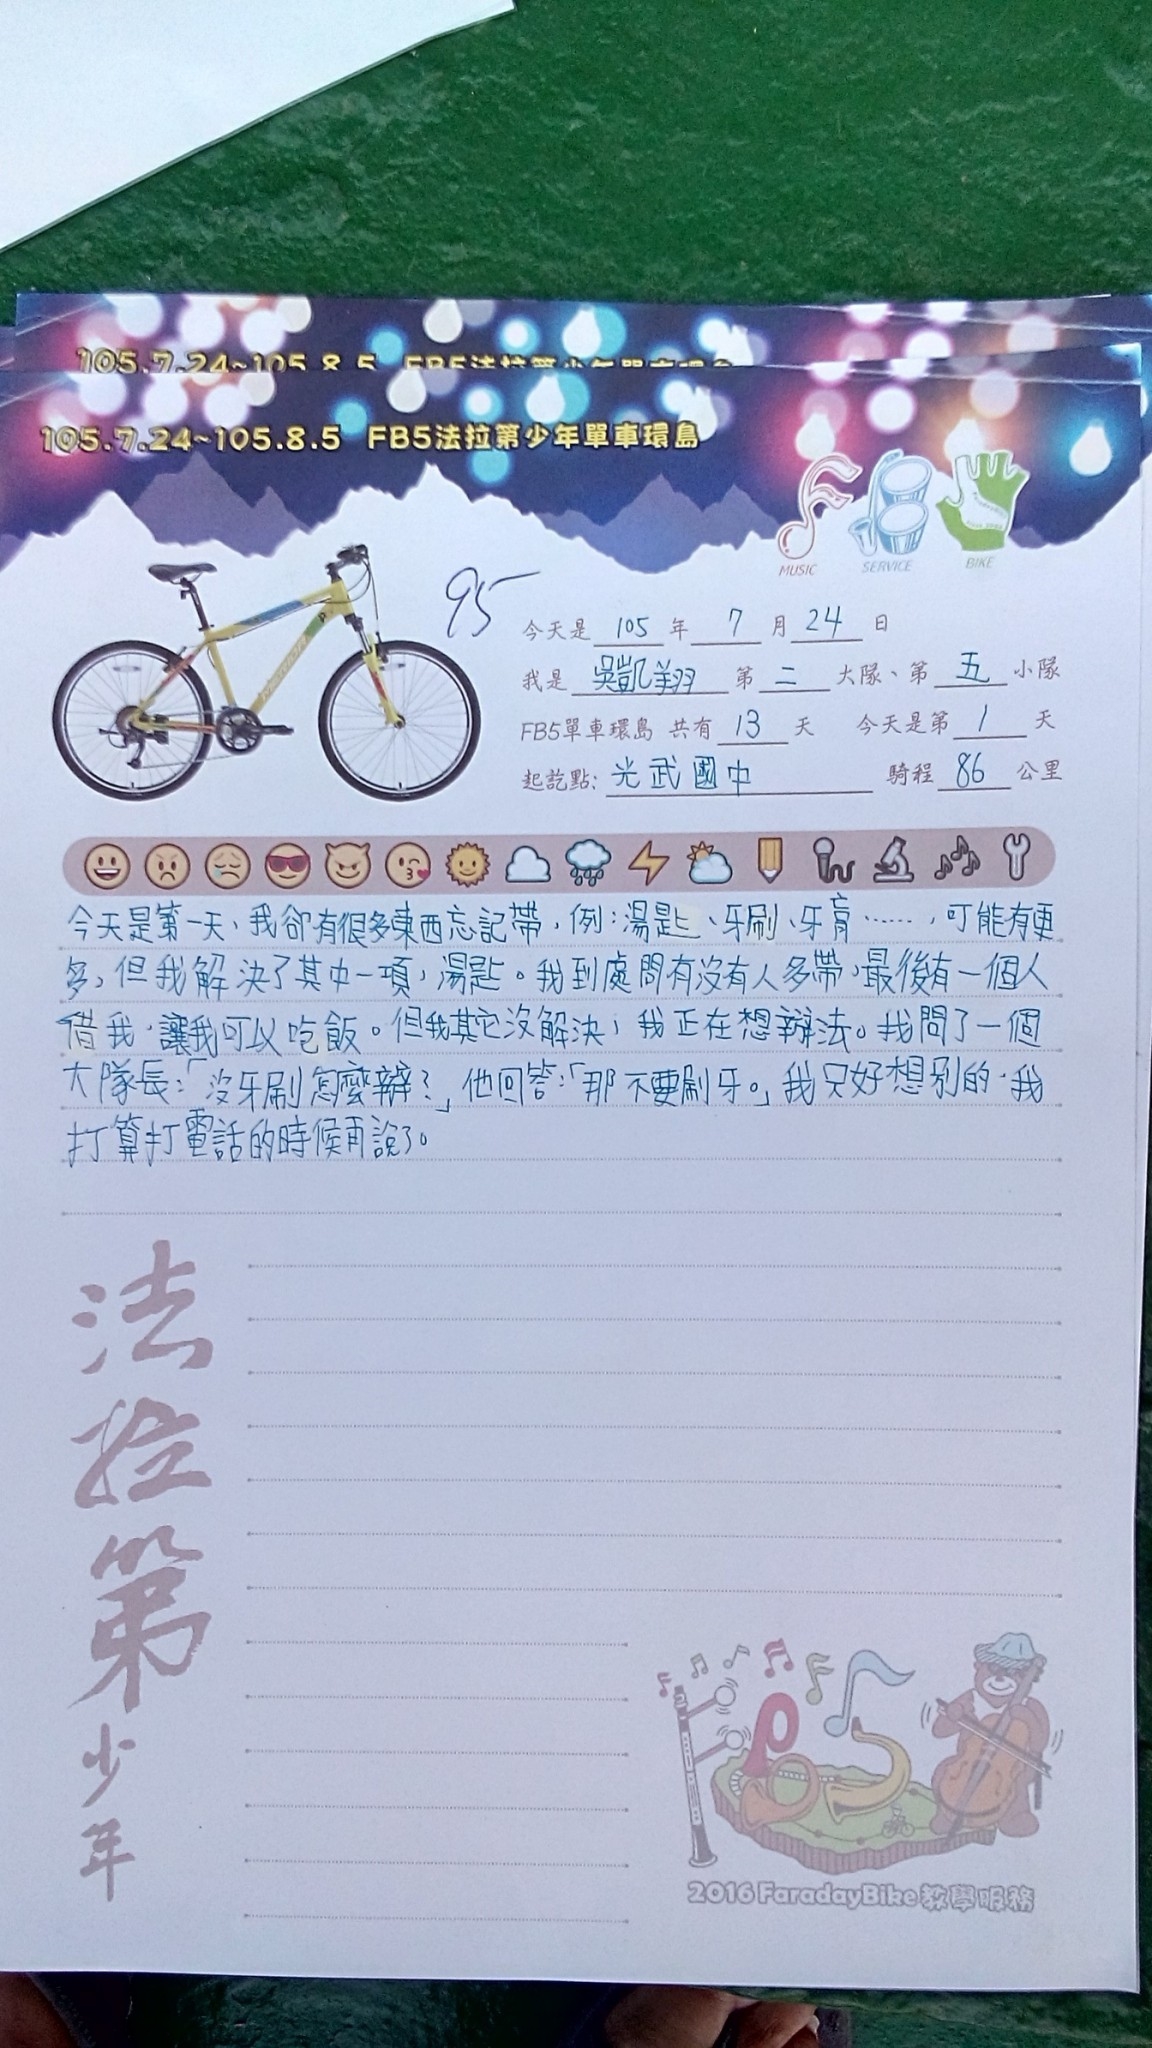 105.7.24~105.8.5 FB5法拉第少年單車環島
105.7.24~105.8.5 FB5法拉第少年單車環島
MUSIC SERVICE BIKE
95
今天是 105 年 7 月 24 日
我是 吳凱翔 第 二 大隊、第 五 小隊
FB5單車環島 共有 13 天 今天是第 1 天
起訖點: 光武國中 騎程 86 公里
今天是第一天,我卻有很多東西忘記帶,例:湯匙、牙刷、牙膏……,可能有更
多,但我解決了其中一項,湯匙。我到處問有沒有人多帶,最後有一個人
借我,讓我可以吃飯。但我其它沒解決,我正在想辦法。我問了一個
大隊長:「沒牙刷怎麼辦?」他回答:「那不要刷牙。」我只好想別的,我
打算打電話的時候再說了。
法拉第少年
2016 FaradayBike 教學服務